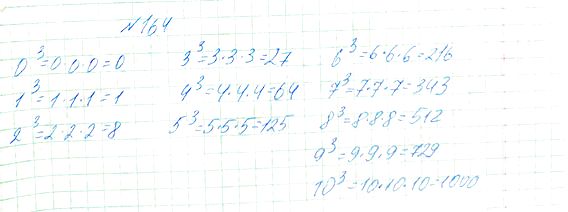 №164
0³=0·0·0=0
1³=1·1·1=1
2³=2·2·2=8
3³=3·3·3=27
4³=4·4·4=64
5³=5·5·5=125
6³=6·6·6=216
7³=7·7·7=343
8³=8·8·8=512
9³=9·9·9=729
10³=10·10·10=1000